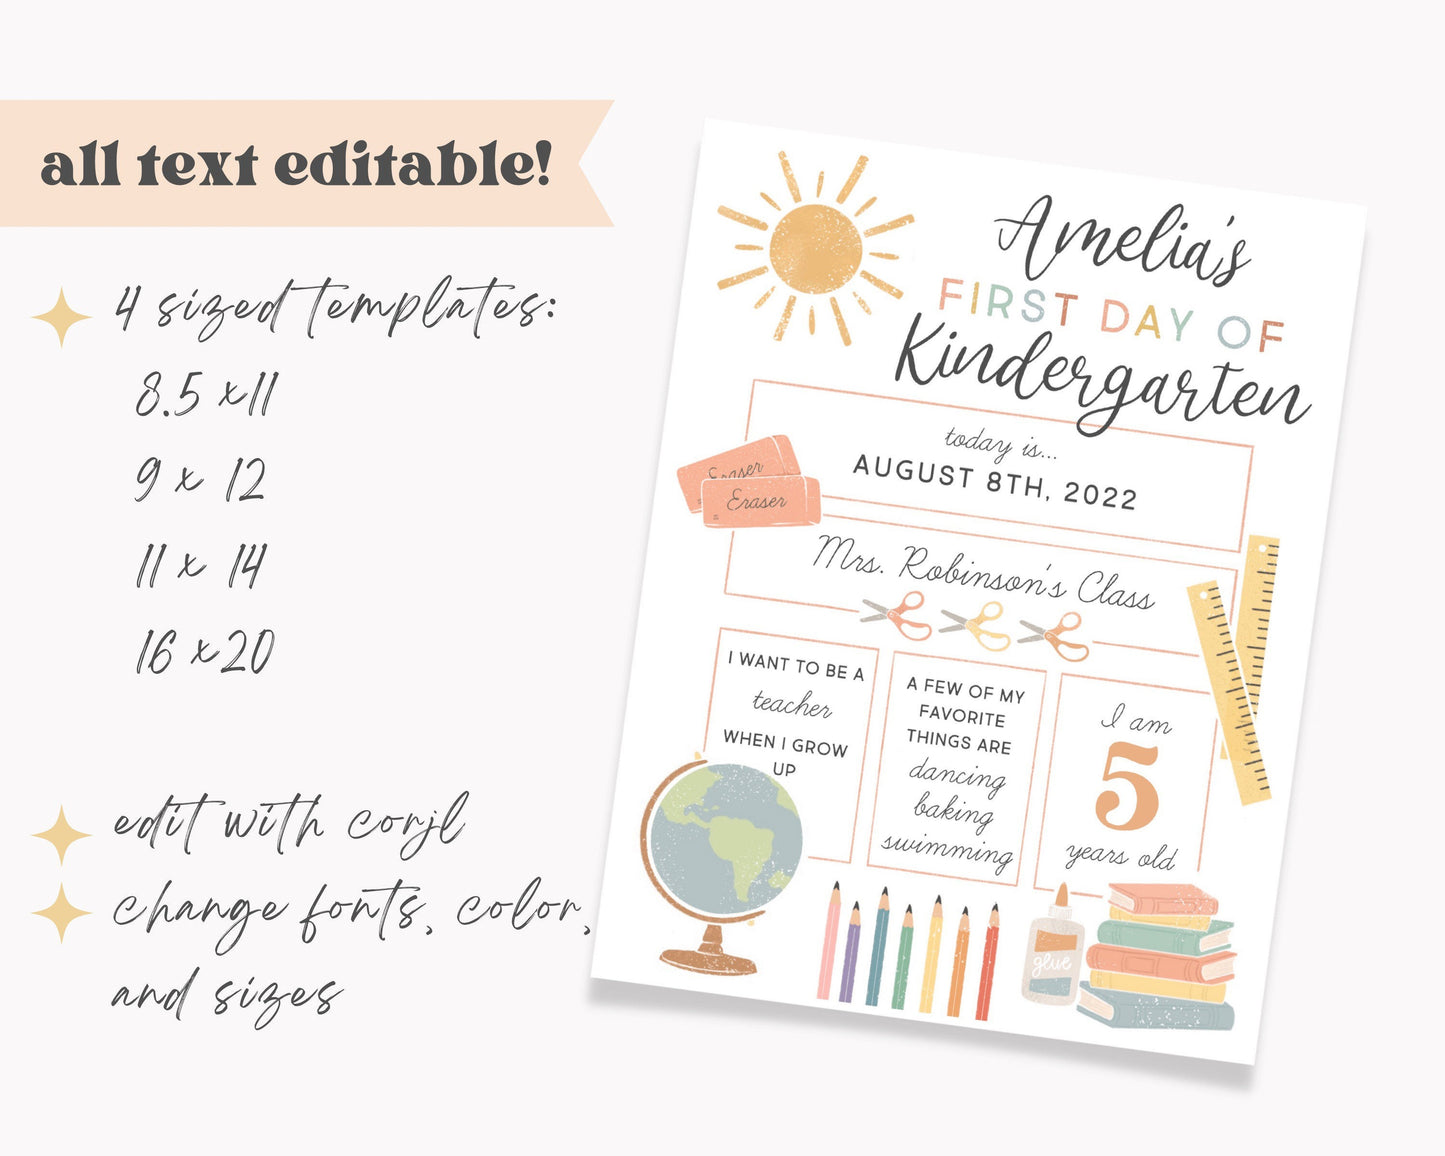 all text editable!
4 sized templates:
8.5 x 11
9 x 12
11 x 14
16 x 20
edit with corjl
change fonts, color,
and sizes
Amelia's
FIRST DAY OF
Kindergarten
today is...
AUGUST 8TH, 2022
Eraser
Eraser
Mrs. Robinson's Class
I WANT TO BE A
teacher
WHEN I GROW
UP
A FEW OF MY
FAVORITE
THINGS ARE
dancing
baking
swimming
I am
5
years old
glue